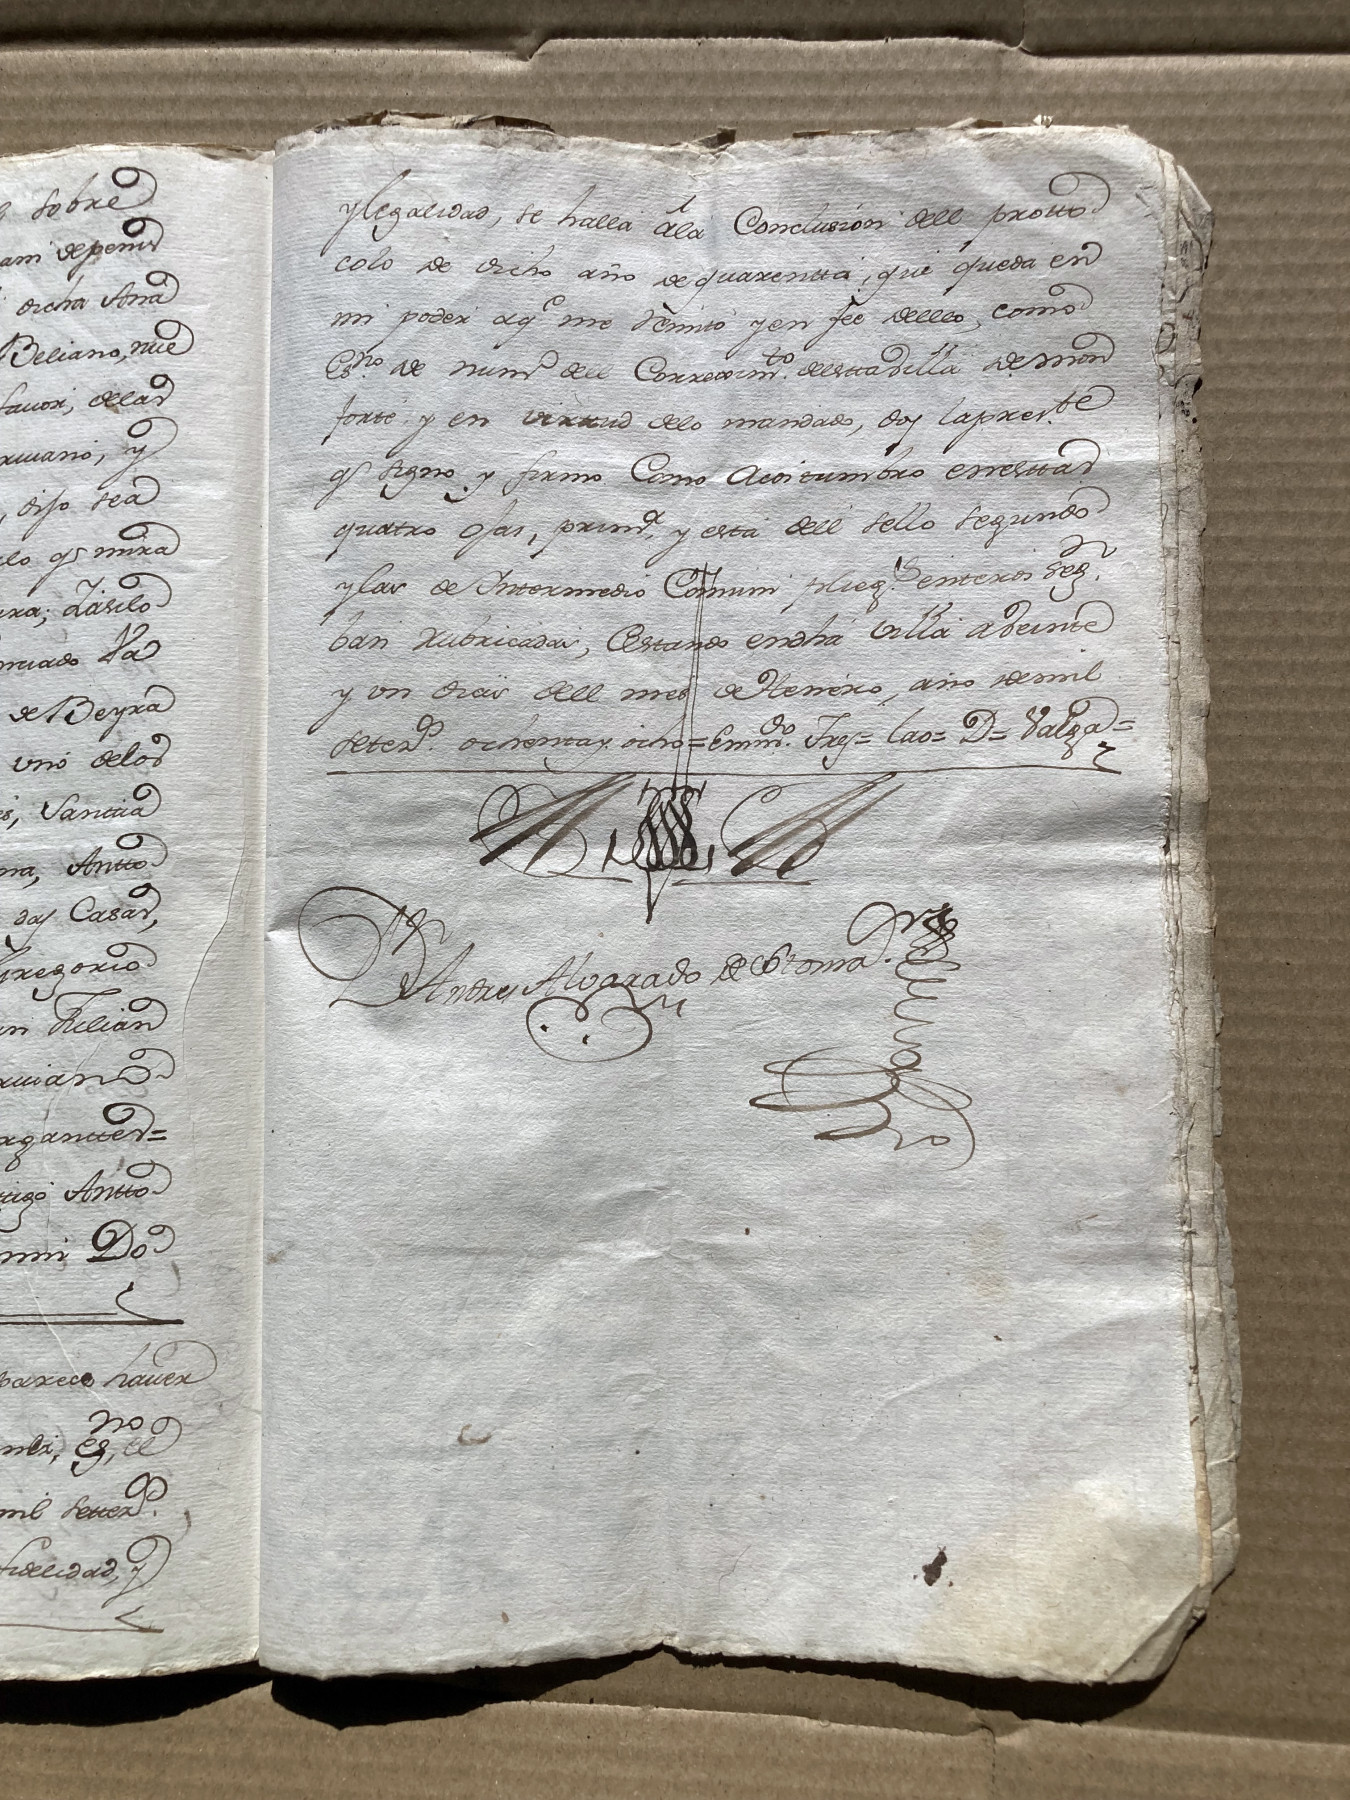 sobre
depenis
dicha Ana
Beliano, nue
favor, delas
y
, dijo sea
qe mira
Vasilo
Va
de Beyra
uno delos
Santtia
Antto
das Casas,
Gregorio
Julian
=
Antto
Do
parece haver
no
es, el
mil settezs.
fidelidad, y
ylegalidad, se halla âla Conclusion dell protto
colo de dicho año de quarentta, que queda en
mi poder aqe me Remito yen fee dello, como
Esno. de numo dell Correximto. destta villa de mon
forte y en virttud delo mandado, doy lapreste
qe signo y firmo Como Acostumbro enestas
quatro ojas, primra, y esta dell sello segundo
ylas de Intermedio Comun pliegs. enteros Segn.
ban Rubricadas, Estando endha villa aveinte
y un dias dell mes de Henero, año demil
setezs. ochentay ocho= Enmdo. Fres= las= D= Valga=
Dn Andres Alvarado de Ostoma.